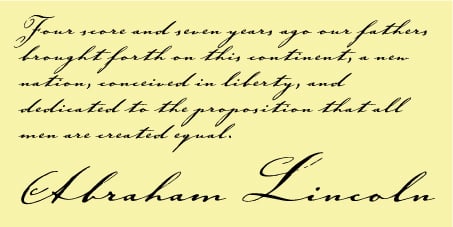 Four score and seven years ago our fathers
brought forth on this continent, a new
nation, conceived in liberty, and
dedicated to the proposition that all
men are created equal.
Abraham Lincoln